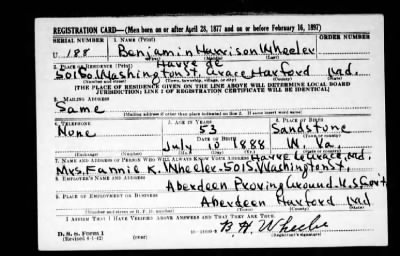 REGISTRATION CARD—(Men born on or after April 28, 1877 and on or before February 16, 1897)
SERIAL NUMBER 1. NAME (Print) ORDER NUMBER
U 188 Benjamin Harrison Wheeler
(First) (Middle) (Last)
2. PLACE OF RESIDENCE (Print) Havre de
501 So. Washington St. Grace Harford Md.
(Number and street) (Town, township, village, or city) (County) (State)
[THE PLACE OF RESIDENCE GIVEN ON THE LINE ABOVE WILL DETERMINE LOCAL BOARD
JURISDICTION; LINE 2 OF REGISTRATION CERTIFICATE WILL BE IDENTICAL]
3. MAILING ADDRESS
Same
(Mailing address if other than place indicated on line 2. If same insert word same)
4. TELEPHONE 5. AGE IN YEARS 6. PLACE OF BIRTH
None 53 Sandstone
DATE OF BIRTH (Town or county)
July 10 1888 W. Va.
(Exchange) (Number) (Mo.) (Day) (Yr.) (State or country)
7. NAME AND ADDRESS OF PERSON WHO WILL ALWAYS KNOW YOUR ADDRESS Havre de Grace, Md.
Mrs. Fannie K. Wheeler. 501 S. Washington St.
8. EMPLOYER'S NAME AND ADDRESS
Aberdeen Proving Ground. U.S. Gov't
9. PLACE OF EMPLOYMENT OR BUSINESS
Aberdeen Harford Md
(Number and street or R. F. D. number) (Town) (County) (State)
I AFFIRM THAT I HAVE VERIFIED ABOVE ANSWERS AND THAT THEY ARE TRUE.
D. S. S. Form 1
(Revised 4-1-42) (over) B. H. Wheeler
(Registrant's signature)